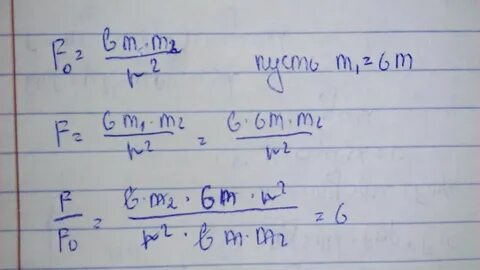 F₀ = G m₁·m₂ / r² пусть m₁ = 6m
F = G m₁·m₂ / r² = G·6m·m₂ / r²
F / F₀ = G·m₂·6m·r² / r²·G m·m₂ = 6